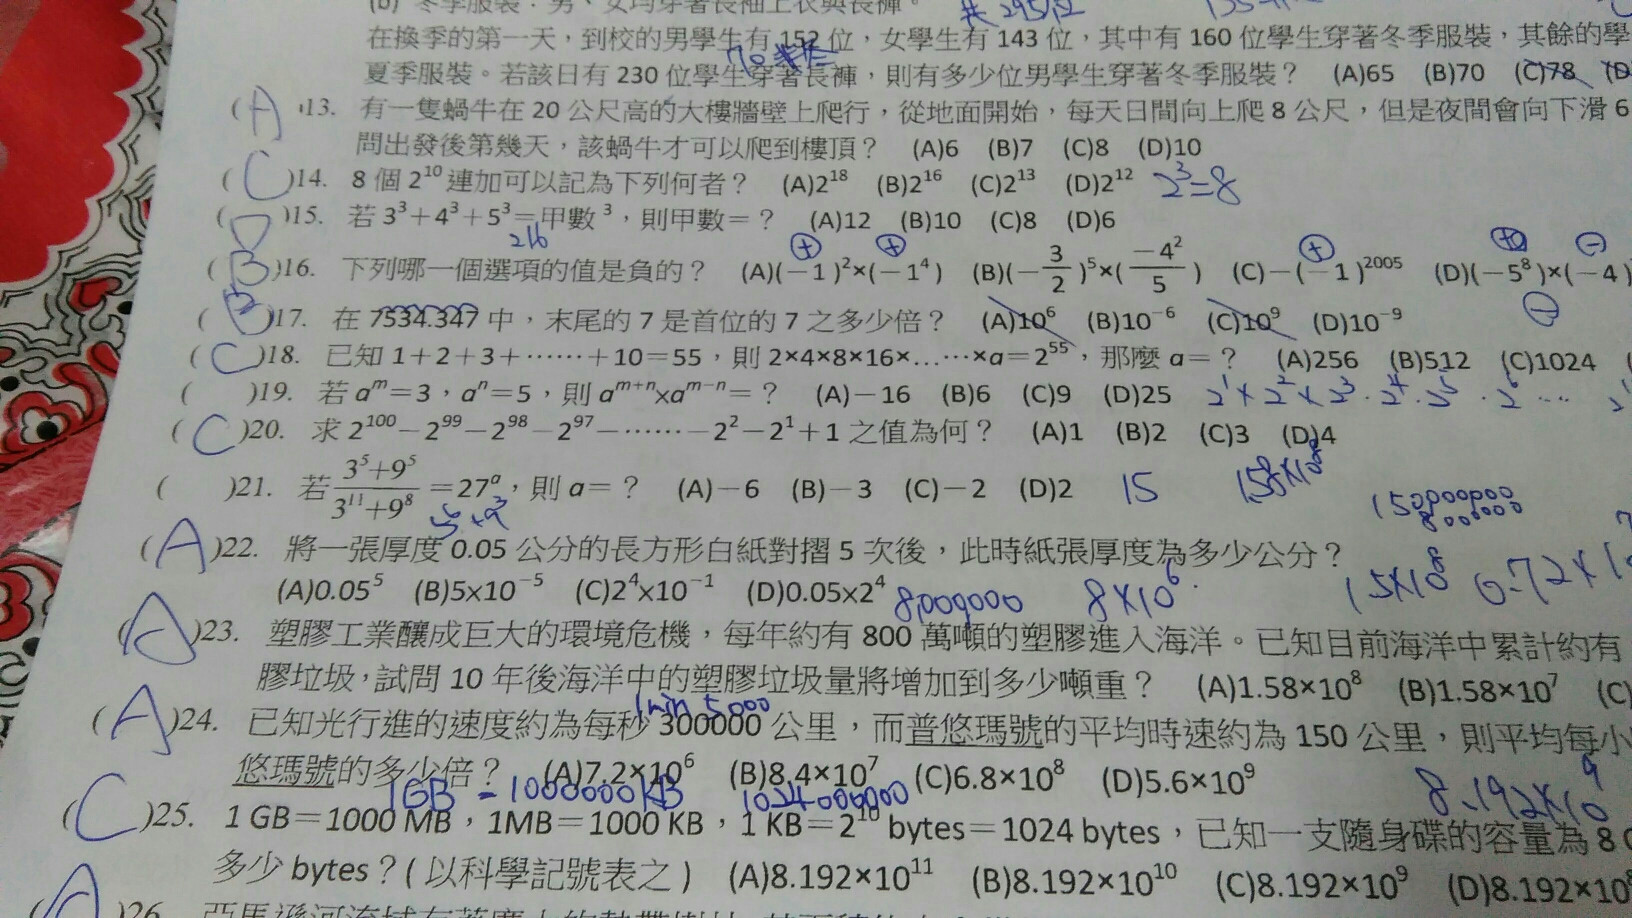 (b) 冬季服裝：男、女均穿著長袖上衣與長褲。
在換季的第一天，到校的男學生有 152 位，女學生有 143 位，其中有 160 位學生穿著冬季服裝，其餘的學
夏季服裝。若該日有 230 位學生穿著長褲，則有多少位男學生穿著冬季服裝？ (A)65 (B)70 (C)78 (D
(A)13. 有一隻蝸牛在 20 公尺高的大樓牆壁上爬行，從地面開始，每天日間向上爬 8 公尺，但是夜間會向下滑 6
問出發後第幾天，該蝸牛才可以爬到樓頂？ (A)6 (B)7 (C)8 (D)10
(C)14. 8 個 2¹⁰ 連加可以記為下列何者？ (A)2¹⁸ (B)2¹⁶ (C)2¹³ (D)2¹² 2³=8
(D)15. 若 3³＋4³＋5³＝甲數³，則甲數＝？ (A)12 (B)10 (C)8 (D)6
216
(B)16. 下列哪一個選項的值是負的？ (A)(－1)²×(－1⁴) (B)(－3/2)⁵×(－4²/5) (C)－(－1)²⁰⁰⁵ (D)(－5⁸)×(－4)
(B)17. 在 7534.347 中，末尾的 7 是首位的 7 之多少倍？ (A)10⁶ (B)10⁻⁶ (C)10⁹ (D)10⁻⁹
(C)18. 已知 1＋2＋3＋⋯⋯＋10＝55，則 2×4×8×16×⋯⋯×a＝2⁵⁵，那麼 a＝？ (A)256 (B)512 (C)1024 (
( )19. 若 aᵐ＝3，aⁿ＝5，則 aᵐ⁺ⁿ×aᵐ⁻ⁿ＝？ (A)－16 (B)6 (C)9 (D)25 2¹×2²×2³·2⁴·2⁵·2⁶⋯
(C)20. 求 2¹⁰⁰－2⁹⁹－2⁹⁸－2⁹⁷－⋯⋯－2²－2¹＋1 之值為何？ (A)1 (B)2 (C)3 (D)4
( )21. 若 (3⁵＋9⁵)/(3¹¹＋9⁸)＝27ᵃ，則 a＝？ (A)－6 (B)－3 (C)－2 (D)2 15
150000000
8000000
(A)22. 將一張厚度 0.05 公分的長方形白紙對摺 5 次後，此時紙張厚度為多少公分？
(A)0.05⁵ (B)5×10⁻⁵ (C)2⁴×10⁻¹ (D)0.05×2⁴ 8,000000 8×10⁶ 1.5×10⁸ 0.72×1
(A)23. 塑膠工業釀成巨大的環境危機，每年約有 800 萬噸的塑膠進入海洋。已知目前海洋中累計約有
膠垃圾，試問 10 年後海洋中的塑膠垃圾量將增加到多少噸重？ (A)1.58×10⁸ (B)1.58×10⁷ (C)
1min 5000
(A)24. 已知光行進的速度約為每秒 300000 公里，而普悠瑪號的平均時速約為 150 公里，則平均每小
悠瑪號的多少倍？ (A)7.2×10⁶ (B)8.4×10⁷ (C)6.8×10⁸ (D)5.6×10⁹
1GB = 1000000KB 1024000000 8.192×10⁹
(C)25. 1 GB＝1000 MB，1MB＝1000 KB，1 KB＝2¹⁰ bytes＝1024 bytes，已知一支隨身碟的容量為 8
多少 bytes？(以科學記號表之) (A)8.192×10¹¹ (B)8.192×10¹⁰ (C)8.192×10⁹ (D)8.192×10⁸
(A)26.